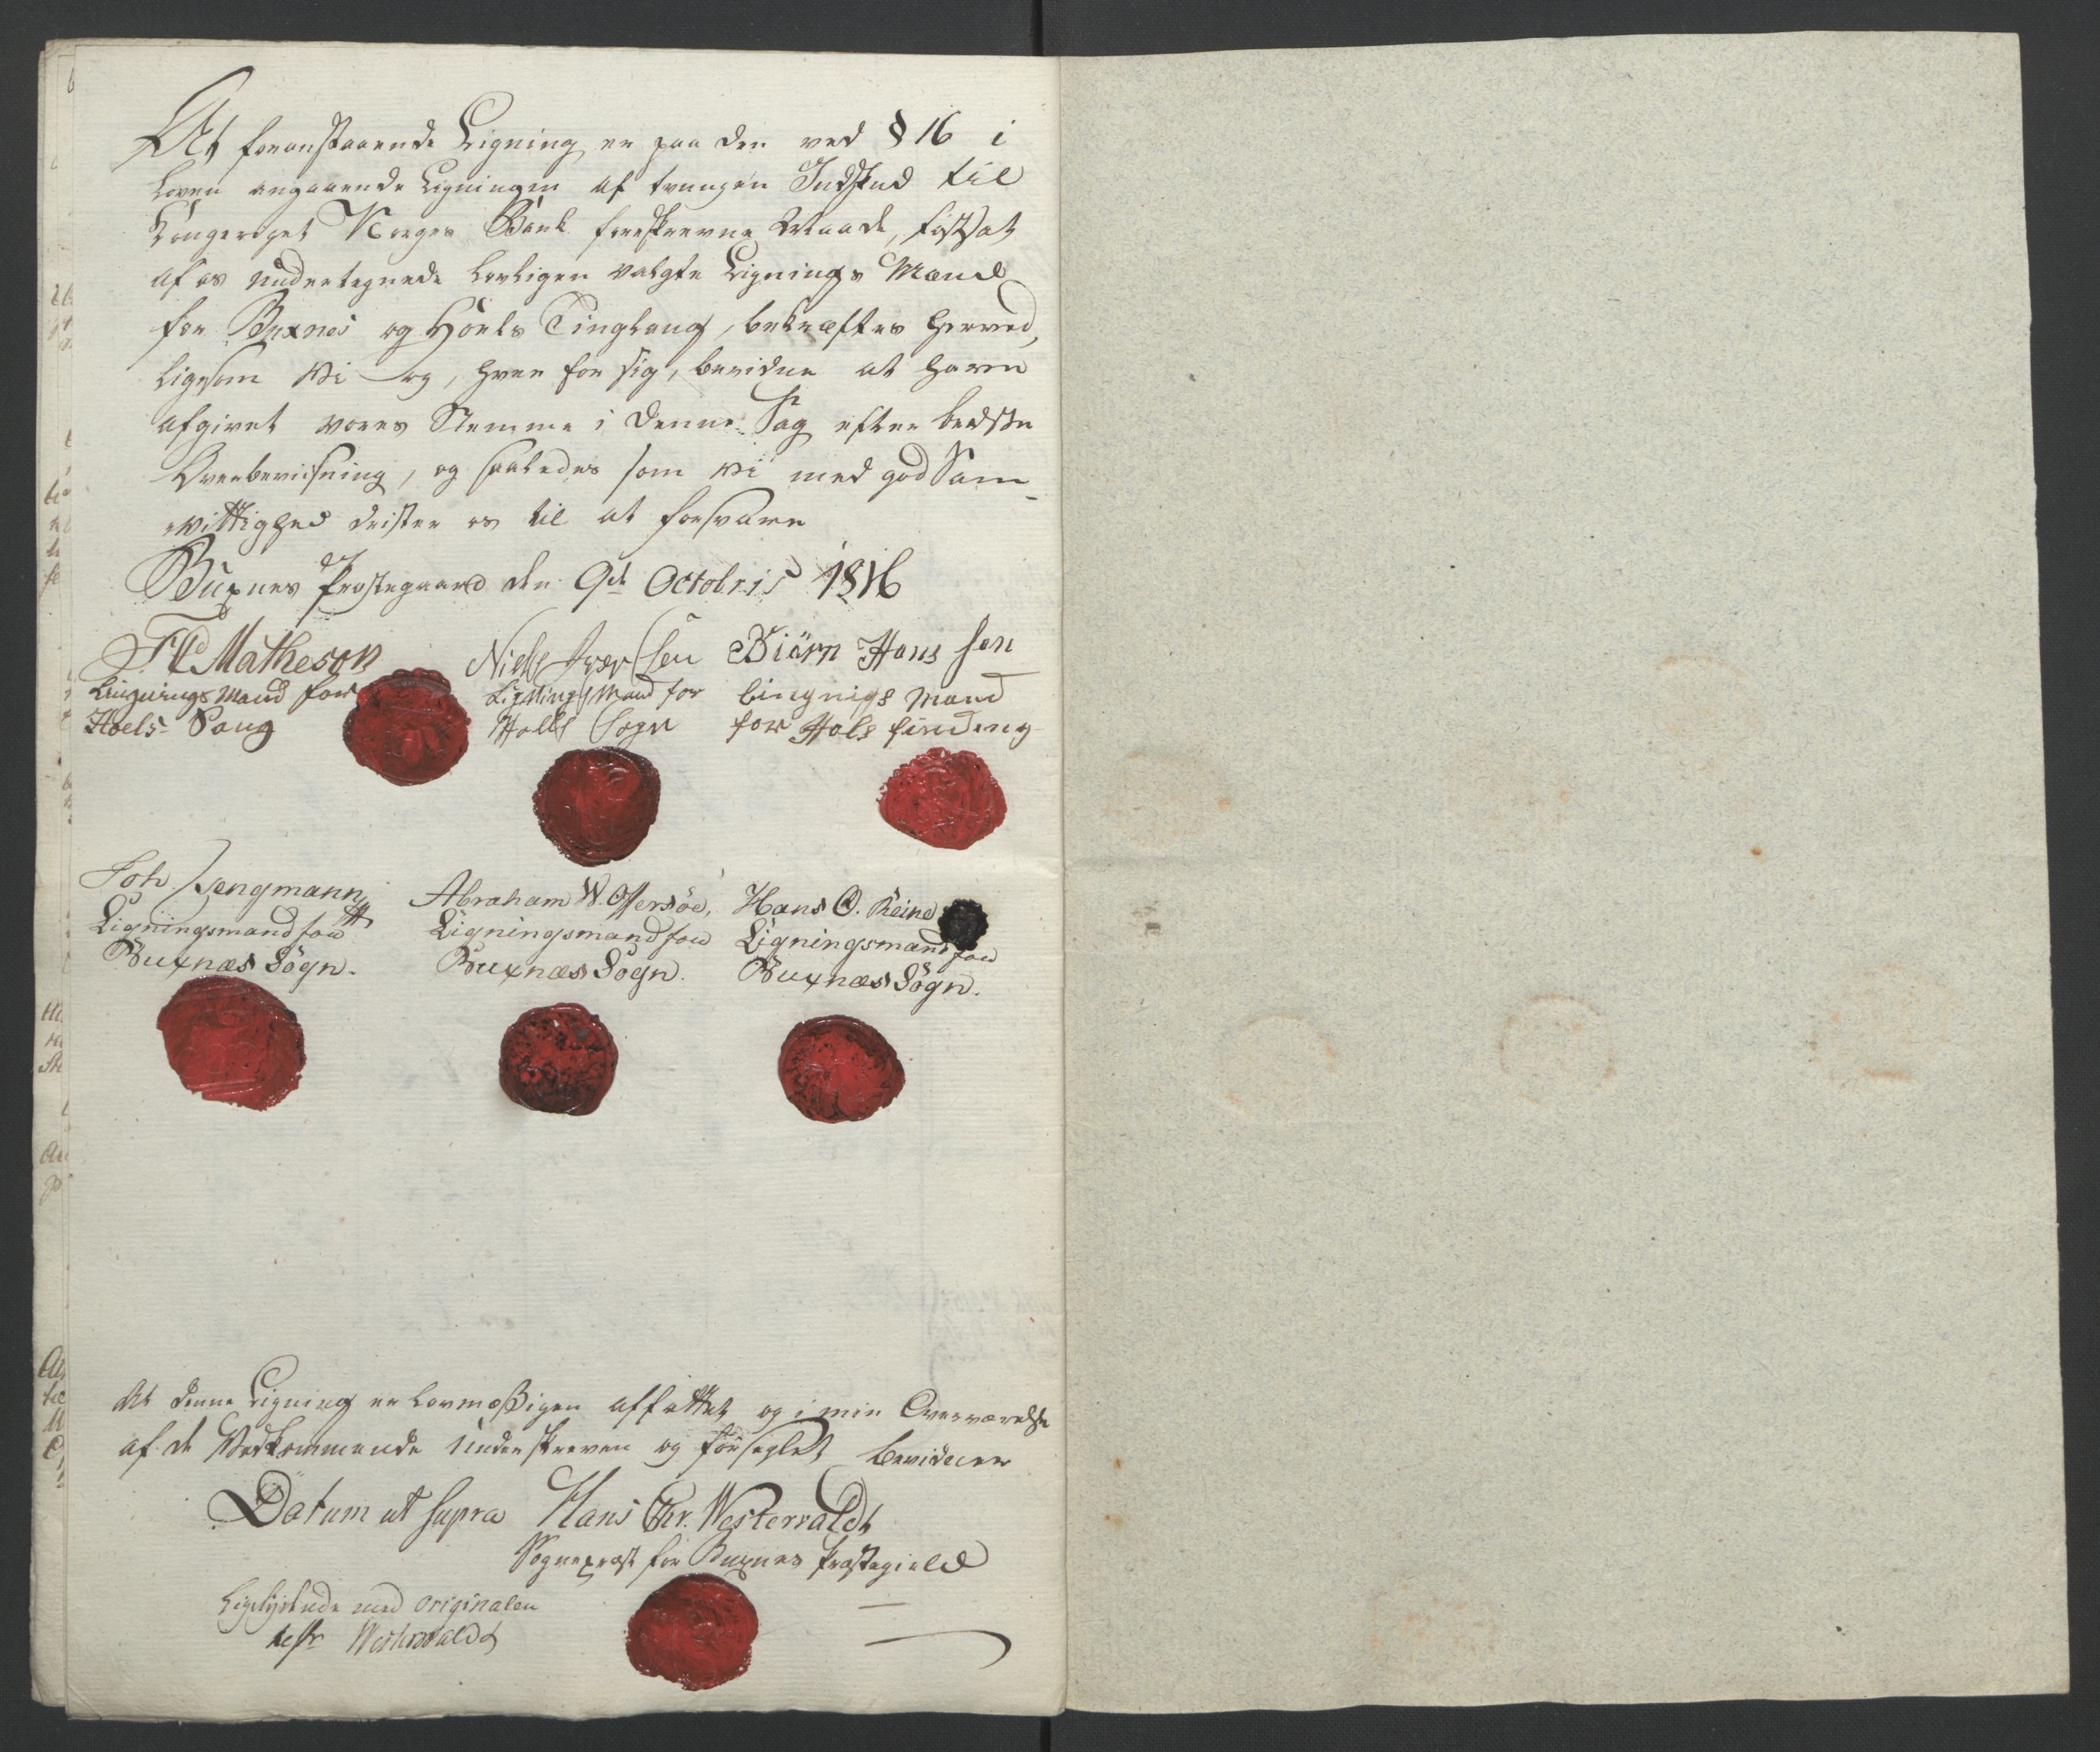 At foranstaaende Ligning er paa den ved § 16 i
Loven angaaende Ligningen af tvungen Indskud til
Kongeriget Norges Bank foreskrevne Maade, fastsat
af os undertegnede lovligen valgte Lignings Mænd
for Buxnes og Höels Tinglaug, bekræftes herved,
ligesom vi og, hver for sig, bevidne at have
afgivet vores Stemme i denne Sag efter bedste
Overbeviisning, og saaledes som vi med god Sam-
vittighed drister os til at forsvare
Buxnes Præstegaard den 9d Octobris 1816
Matheson
Ligningsmand for
Hoels Song
Niels Iversen
Lignings Mand for
Holls Sogn
Biörn Hans sen
lingnigs Mand
for Hols finding
Joh Jengmann
Ligningsmand for
Buxnæs Sogn.
Abraham W. Offersöe,
Ligningsmand for
Buxnæs Sogn.
Hans O. Reine
Ligningsmand for
Buxnæs Sogn.
At denne Ligning er lovmæßigen affattet og i min Overværelse
af de Vedkommende underskreven og forseglet bevidner
Datum ut supra Hans Chr. Westervaldt
Sognepræst for Buxnes Præstegield
Ligelydende med originalen
test Westerwaldt